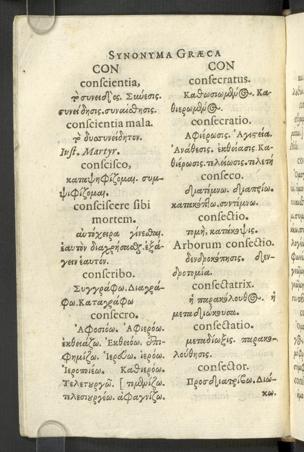 SYNONYMA GRÆCA
CON
conscientia,
τὸ συνειδός. Σύνεσις.
συνείδησις. συναίσθησις.
conscientia mala.
τὸ δυσσυνείδητον.
Iust. Martyr.
conscisco,
καταψηφίζομαι. συμ-
ψηφίζομαι.
consciscere sibi
mortem.
αὐτόχειρα γενέσθαι.
ἑαυτὸν διαχρήσασθαι. ἐξά-
γειν ἑαυτόν.
conscribo.
Συγγράφω. Διαγρά-
φω. Καταγράφω
consecro.
Ἀφοσιόω. Ἀφιερόω.
ἐκθειάζω. Ἐκθειόω. ἐπι-
φημίζω. Ἱερόω.
Ἱεροποιέω. Καθιερόω.
Τελετουργῶ.
τελεσιουργέω. ἀφαγνίζω.
CON
consecratus.
Καθωσιωμένος. Κα-
θιερωμένος.
consecratio.
Ἀφιέρωσις. Ἁγιστεία.
Ἀνάθεσις. ἐκθείασις. Κα-
θιέρωσις. τελείωσις. τελετή
conseco.
διατέμνω.
κατακόπτω. συντέμνω.
consectio.
τομή. κατάκοψις.
Arborum consectio.
δενδροκόπησις. δεν-
δροτομία.
consectatrix.
ἡ παρακολουθος. ἡ
μεταδιώκουσα.
consectatio.
μεταδίωξις. παρακο-
λούθησις.
consector.
Προσδιατρίβω. Διώ-
κω.